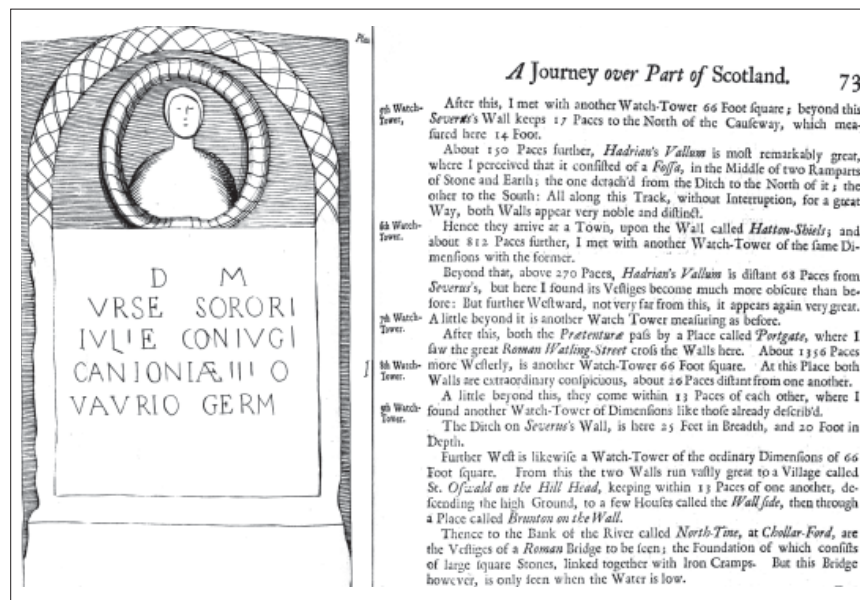 D M
VRSE SORORI
IVLIE CONIVGI
CANIONIÆ IIII O
VAVRIO GERM
A Journey over Part of Scotland. 73
After this, I met with another Watch-Tower 66 Foot ſquare; beyond this
Severus's Wall keeps 17 Paces to the North of the Cauſeway, which mea-
ſured here 14 Foot.
About 150 Paces further, Hadrian's Vallum is moſt remarkably great,
where I perceived that it conſiſted of a Foſſa, in the Middle of two Ramparts
of Stone and Earth; the one detach'd from the Ditch to the North of it; the
other to the South: All along this Track, without Interruption, for a great
Way, both Walls appear very noble and diſtinct.
6th Watch-
Tower.
Hence they arrive at a Town, upon the Wall called Hatton-Shiels; and
about 812 Paces further, I met with another Watch-Tower of the ſame Di-
menſions with the former.
Beyond that, above 270 Paces, Hadrian's Vallum is diſtant 68 Paces from
Severus's, but here I found its Veſtiges become much more obſcure than be-
fore: But further Weſtward, not very far from this, it appears again very great.
7th Watch-
Tower.
A little beyond it is another Watch Tower meaſuring as before.
After this, both the Prætenturæ paſs by a Place called Portgate, where I
ſaw the great Roman Watling-Street croſs the Walls here. About 1356 Paces
8th Watch-
Tower.
more Weſterly, is another Watch-Tower 66 Foot ſquare. At this Place both
Walls are extraordinary conſpicuous, about 26 Paces diſtant from one another.
A little beyond this, they come within 13 Paces of each other, where I
9th Watch-
Tower.
found another Watch-Tower of Dimenſions like thoſe already deſcrib'd.
The Ditch on Severus's Wall, is here 25 Feet in Breadth, and 20 Foot in
Depth.
Further Weſt is likewiſe a Watch-Tower of the ordinary Dimenſions of 66
Foot ſquare. From this the two Walls run vaſtly great to a Village called
St. Oſwald on the Hill Head, keeping within 13 Paces of one another, de-
ſcending the high Ground, to a few Houſes called the Wall ſide, then through
a Place called Brunton on the Wall.
Thence to the Bank of the River called North-Tine, at Chollar-Ford, are
the Veſtiges of a Roman Bridge to be ſeen; the Foundation of which conſiſts
of large ſquare Stones, linked together with Iron Cramps. But this Bridge
however, is only ſeen when the Water is low.